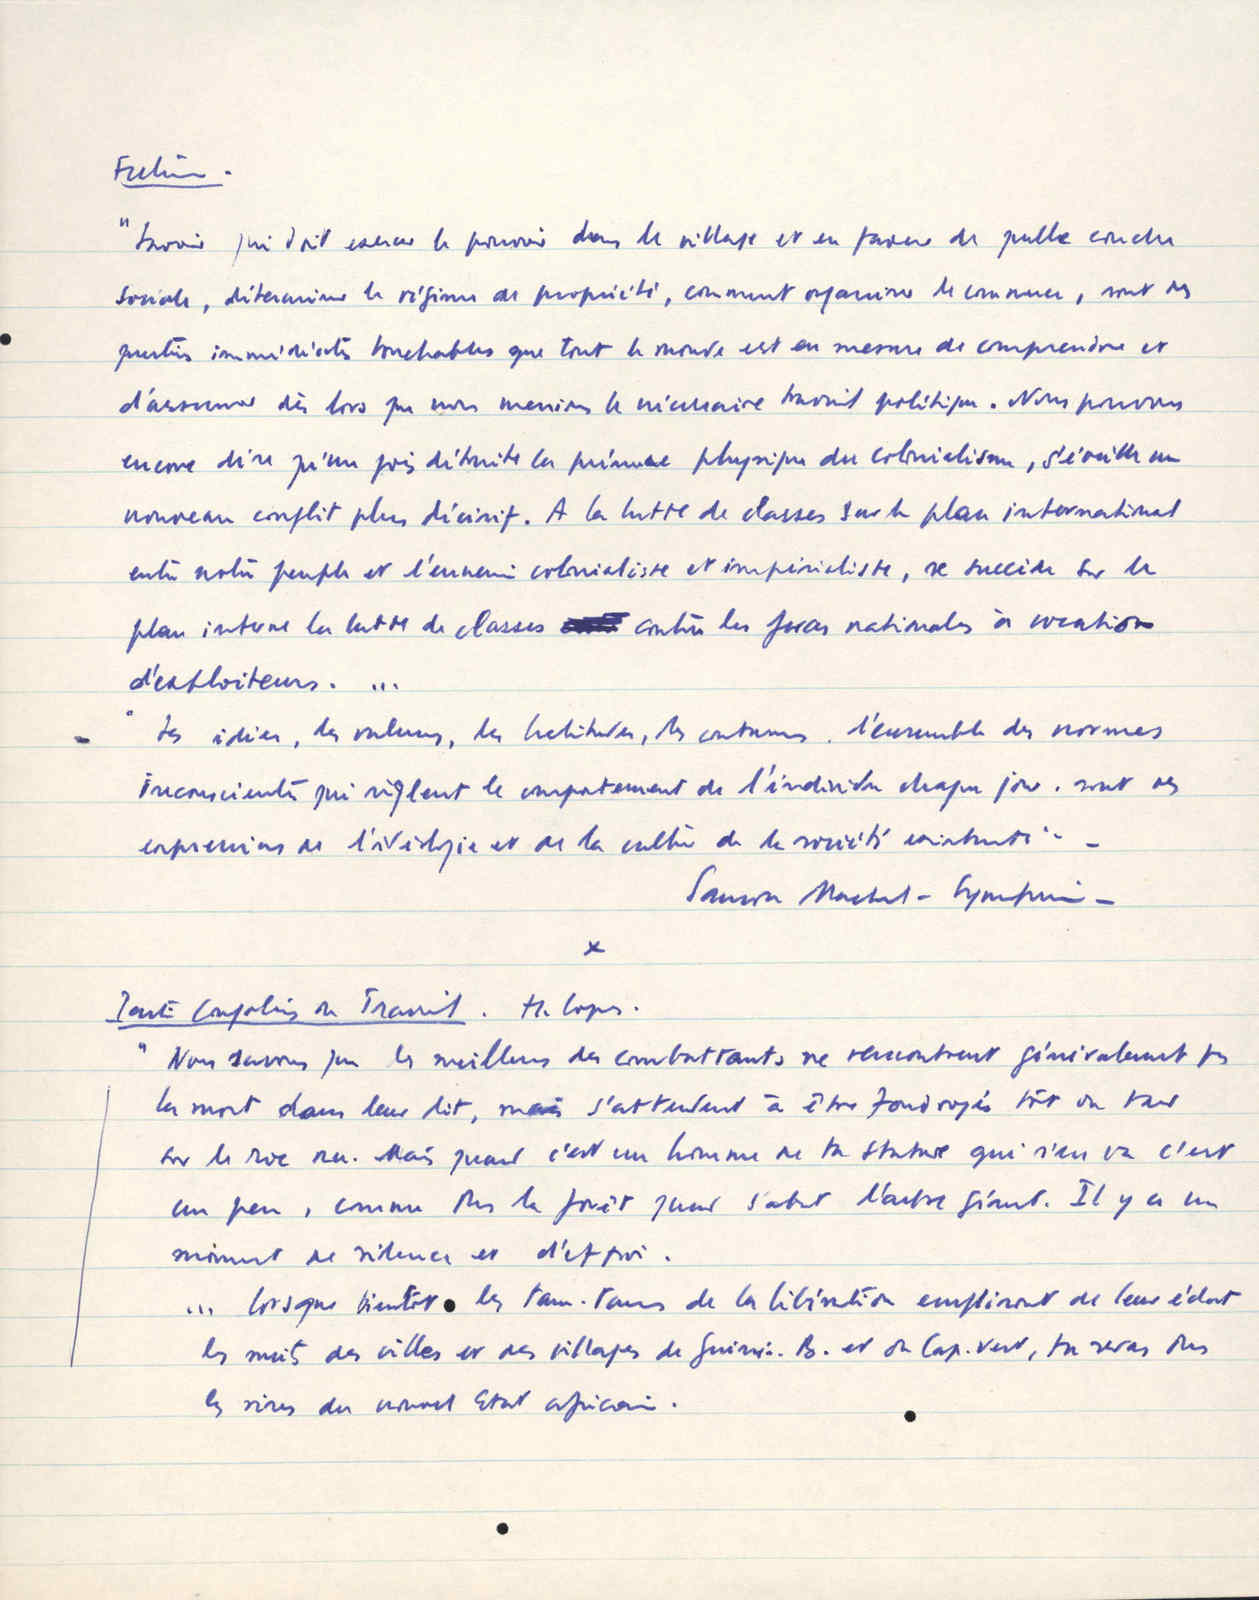 Frelimo.
"Savoir qui doit exercer le pouvoir dans le village et en faveur de quelle couche
sociale, déterminer le régime de propriété, comment organiser le commerce, sont des
questions immédiates touchables que tout le monde est en mesure de comprendre et
d'assumer dès lors que nous menions le nécessaire travail politique. Nous pouvons
encore dire qu'une fois détruite la présence physique du colonialisme, s'éveille un
nouveau conflit plus décisif. A la lutte de classes sur le plan international
entre notre peuple et l'ennemi colonialiste et impérialiste, se succède sur le
plan interne la lutte de classes contre les forces nationales à vocation
d'exploiteurs. ...
" Les idées, les valeurs, les habitudes, les coutumes, l'ensemble des normes
inconscientes qui règlent le comportement de l'individu chaque jour. sont des
expressions de l'idéologie et de la culture de la société existante" -
Samora Machel -
x
Congolais en Transit. H. Lopes.
" Nous savons que les meilleurs des combattants ne rencontrent généralement pas
la mort dans leur lit, mais s'attendent à être foudroyés tôt ou tard
sur le roc nu. Mais quand c'est un homme de ta stature qui s'en va c'est
un peu, comme dans la forêt quand s'abat l'arbre géant. Il y a un
moment de silence et d'effroi.
... lorsque bientôt les tam-tams de la libération empliront de leur éclat
les nuits des villes et des villages de Guinée. B. et du Cap. Vert, tu seras dans
les rires du nouvel Etat africain.